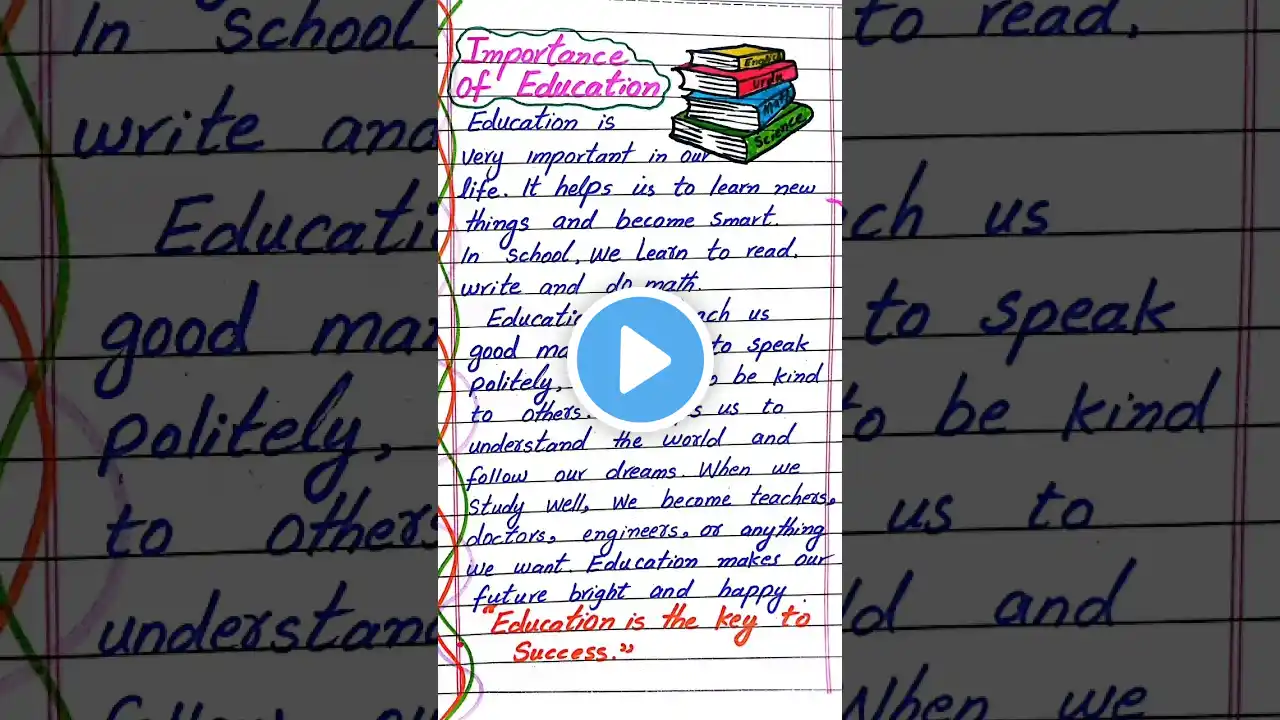 Importance
of Education
English
Urdu
Math
Science
Education is
very important in our
life. It helps us to learn new
things and become smart.
In school, we learn to read,
write and do math.
Education us
good to speak
politely, be kind
to others. us to
understand the world and
follow our dreams. When we
study well, we become teachers,
doctors, engineers, or anything
we want. Education makes our
future bright and happy.
"Education is the key to
Success."